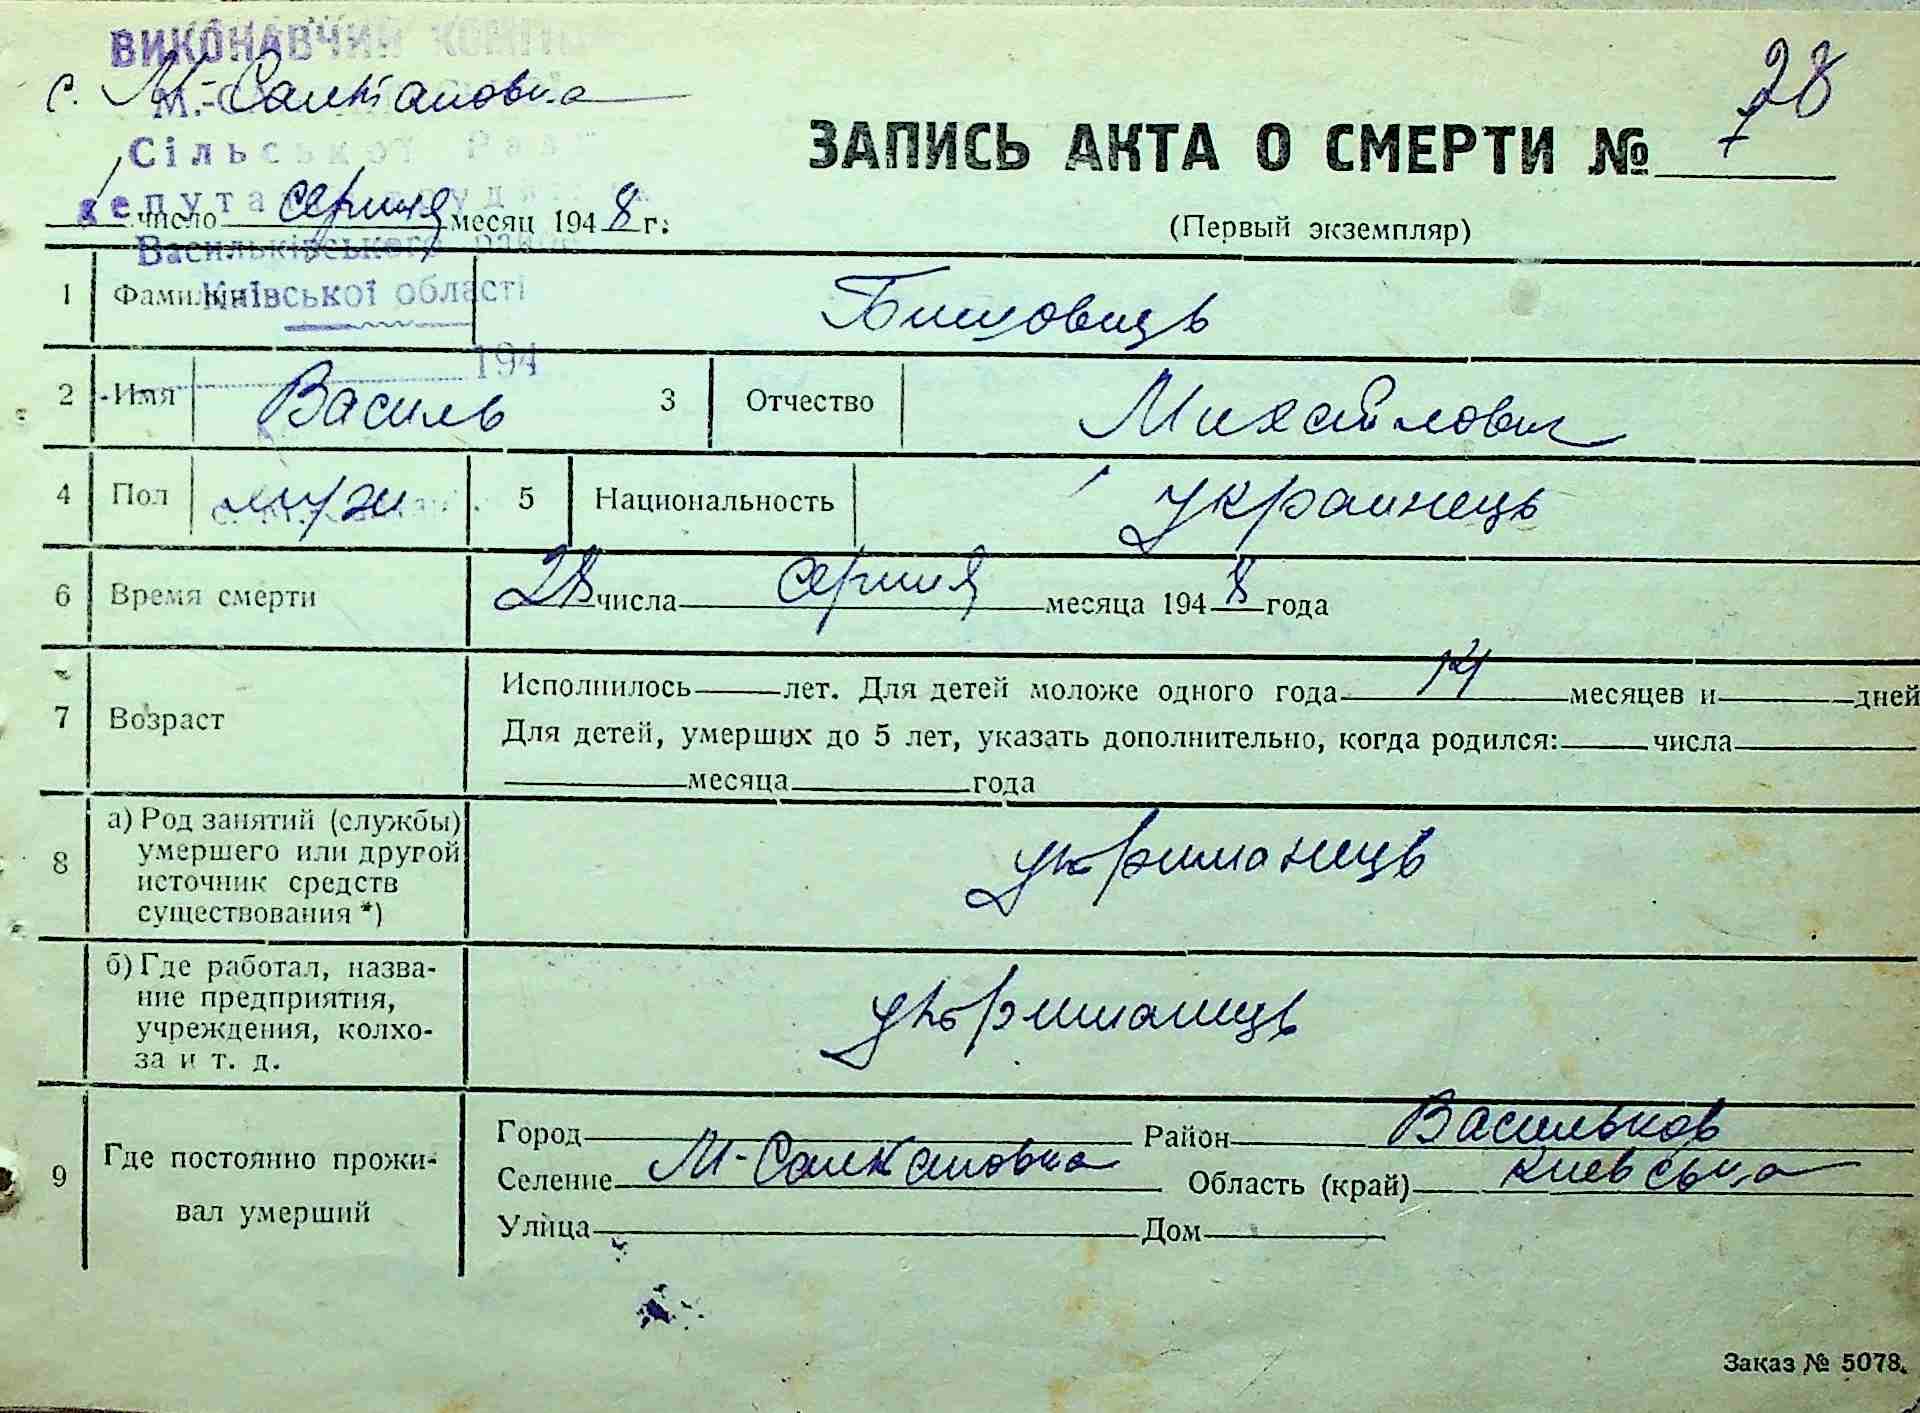 ВИКОНАВЧИЙ КОМІТ
с. М-Салтановка
М.-С
28
7
Сільської Рад
ЗАПИСЬ АКТА О СМЕРТИ №
депута труд
число серпня месяц 1948 г.
(Первый экземпляр)
Васильківського район
1 Фамилия Бишовець
Київської області
194
2 Имя Василь 3 Отчество Михайлович
4 Пол муж 5 Национальность украинець
6 Время смерти 28 числа серпня месяца 1948 года
7 Возраст Исполнилось лет. Для детей моложе одного года 14 месяцев и дней
Для детей, умерших до 5 лет, указать дополнительно, когда родился: числа
месяца года
8 а) Род занятий (службы) умершего или другой источник средств существования *) утриманець
б) Где работал, назва-
ние предприятия,
учреждения, колхо-
за и т. д. утриманець
9 Где постоянно прожи-
вал умерший
Город Район Васильков
Селение М-Салтановка Область (край) Киевська
Улица Дом
Заказ № 5078.